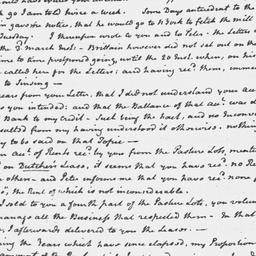 go I am to hire a week. Some Day antecedent to the
in gave me notice, that he would go to N York to fetch the mill
Tuesday. I thereupon wrote to you and to Peter. the Letter
the 3 March Inst - Brittain however did not set out on the
time to time postponed going, until the 20 Inst. when, on his
called here for the Letters; and having rec.d them, comme
to Sinsing —
ears from your Letter, that I did not understand your Acc
you intended; and that the Ballance of that acc.t was
Bank to my credit - Just being the hast, and no Inconve
esulted from my having understood it otherwise. nothing
y to be said on that Topic —
acc.t of Rents rec.d by you from the Pasture Lots, menti
on Dutcher's Lease, it seems that you have rec.d no Re
others - and Peter informs me that you have rec.d none
, the Rent of which is not inconsiderable.
I sold to you a fourth part of the Pasture Lots, you volun
manage all the Business that respected them - In that
I afterwards delivered to you the Leases. —
ing the Years which have since elapsed, my Proportion